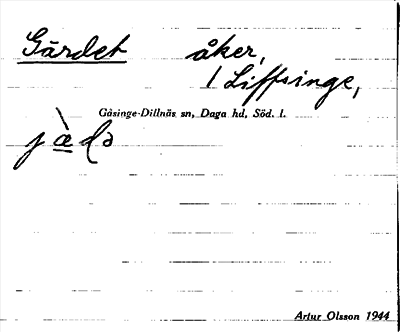 Gärdet åker,
1 Liffsinge,
Gåsinge-Dillnäs sn, Daga hd, Söd. l.
Artur Olsson 1944